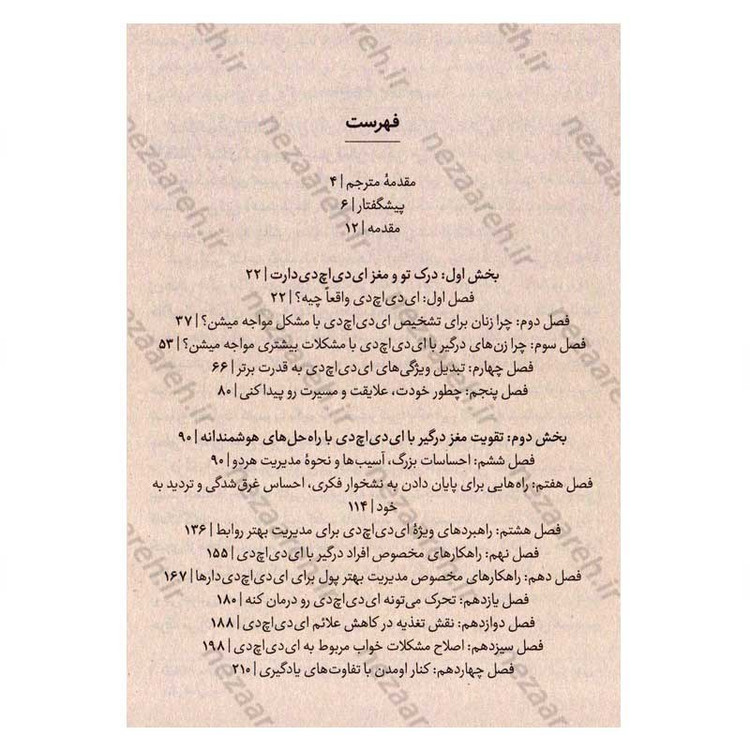 فهرست
مقدمهٔ مترجم | ۴
پیشگفتار | ۶
مقدمه | ۱۲
بخش اول: درک تو و مغز ای‌دی‌اچ‌دی‌دارت | ۲۲
فصل اول: ای‌دی‌اچ‌دی واقعاً چیه؟ | ۲۲
فصل دوم: چرا زنان برای تشخیص ای‌دی‌اچ‌دی با مشکل مواجه میشن؟ | ۳۷
فصل سوم: چرا زن‌های درگیر با ای‌دی‌اچ‌دی با مشکلات بیشتری مواجه میشن؟ | ۵۳
فصل چهارم: تبدیل ویژگی‌های ای‌دی‌اچ‌دی به قدرت برتر | ۶۶
فصل پنجم: چطور خودت، علایقت و مسیرت رو پیدا کنی | ۸۰
بخش دوم: تقویت مغز درگیر با ای‌دی‌اچ‌دی با راه‌حل‌های هوشمندانه | ۹۰
فصل ششم: احساسات بزرگ، آسیب‌ها و نحوهٔ مدیریت هردو | ۹۰
فصل هفتم: راه‌هایی برای پایان دادن به نشخوار فکری، احساس غرق‌شدگی و تردید به
خود | ۱۱۴
فصل هشتم: راهبردهای ویژهٔ ای‌دی‌اچ‌دی برای مدیریت بهتر روابط | ۱۳۶
فصل نهم: راهکارهای مخصوص افراد درگیر با ای‌دی‌اچ‌دی | ۱۵۵
فصل دهم: راهکارهای مخصوص مدیریت بهتر پول برای ای‌دی‌اچ‌دی‌دارها | ۱۶۷
فصل یازدهم: تحرک می‌تونه ای‌دی‌اچ‌دی رو درمان کنه | ۱۸۰
فصل دوازدهم: نقش تغذیه در کاهش علائم ای‌دی‌اچ‌دی | ۱۸۸
فصل سیزدهم: اصلاح مشکلات خواب مربوط به ای‌دی‌اچ‌دی | ۱۹۸
فصل چهاردهم: کنار اومدن با تفاوت‌های یادگیری | ۲۱۰
nezaareh.ir